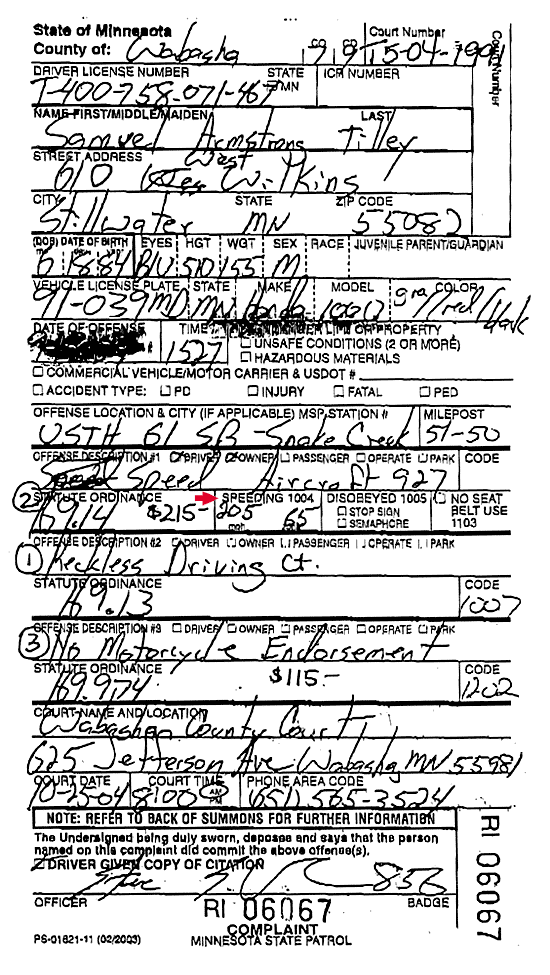 State of Minnesota
County of: Wabasha
Court Number
DRIVER LICENSE NUMBER STATE ICR NUMBER
T-400-758-071-467 MN
NAME FIRST/MIDDLE/MAIDEN LAST
Samuel Armstrong Tilley
STREET ADDRESS
610 West Wilkins
CITY STATE ZIP CODE
Stillwater MN 55082
(DOB) DATE OF BIRTH EYES HGT WGT SEX RACE JUVENILE PARENT/GUARDIAN
6 18 84 BLU 510 155 M
VEHICLE LICENSE PLATE STATE MAKE MODEL COLOR
91-039MD MN Honda 1000 gra/red/black
DATE OF OFFENSE TIME LIFE OR PROPERTY
1527 UNSAFE CONDITIONS (2 OR MORE)
HAZARDOUS MATERIALS
COMMERCIAL VEHICLE/MOTOR CARRIER & USDOT #
ACCIDENT TYPE: PD INJURY FATAL PED
OFFENSE LOCATION & CITY (IF APPLICABLE) MSP STATION # MILEPOST
USTH 61 SB -Snake Creek 51-50
OFFENSE DESCRIPTION #1 DRIVER OWNER PASSENGER OPERATE PARK CODE
Speed Aircraft 927
2 STATUTE ORDINANCE SPEEDING 1004 DISOBEYED 1005 NO SEAT BELT USE 1103
169.14 $215- 205 65 STOP SIGN
SEMAPHORE
OFFENSE DESCRIPTION #2 DRIVER OWNER PASSENGER OPERATE PARK
1 Reckless Driving Ct.
STATUTE ORDINANCE CODE
169.13 1007
OFFENSE DESCRIPTION #3 DRIVER OWNER PASSENGER OPERATE PARK
3 No Motorcycle Endorsement
STATUTE ORDINANCE CODE
169.974 $115.- 1202
COURT NAME AND LOCATION
Wabasha County Court
625 Jefferson Ave Wabasha MN 55981
COURT DATE COURT TIME PHONE AREA CODE
10-25-04 8:00 AM PM (651) 565-3524
NOTE: REFER TO BACK OF SUMMONS FOR FURTHER INFORMATION
The Undersigned being duly sworn, deposes and says that the person
named on this complaint did commit the above offense(s).
DRIVER GIVEN COPY OF CITATION
856
OFFICER BADGE
RI 06067
COMPLAINT
PS-01821-11 (02/2003) MINNESOTA STATE PATROL
Court Number
RI 06067